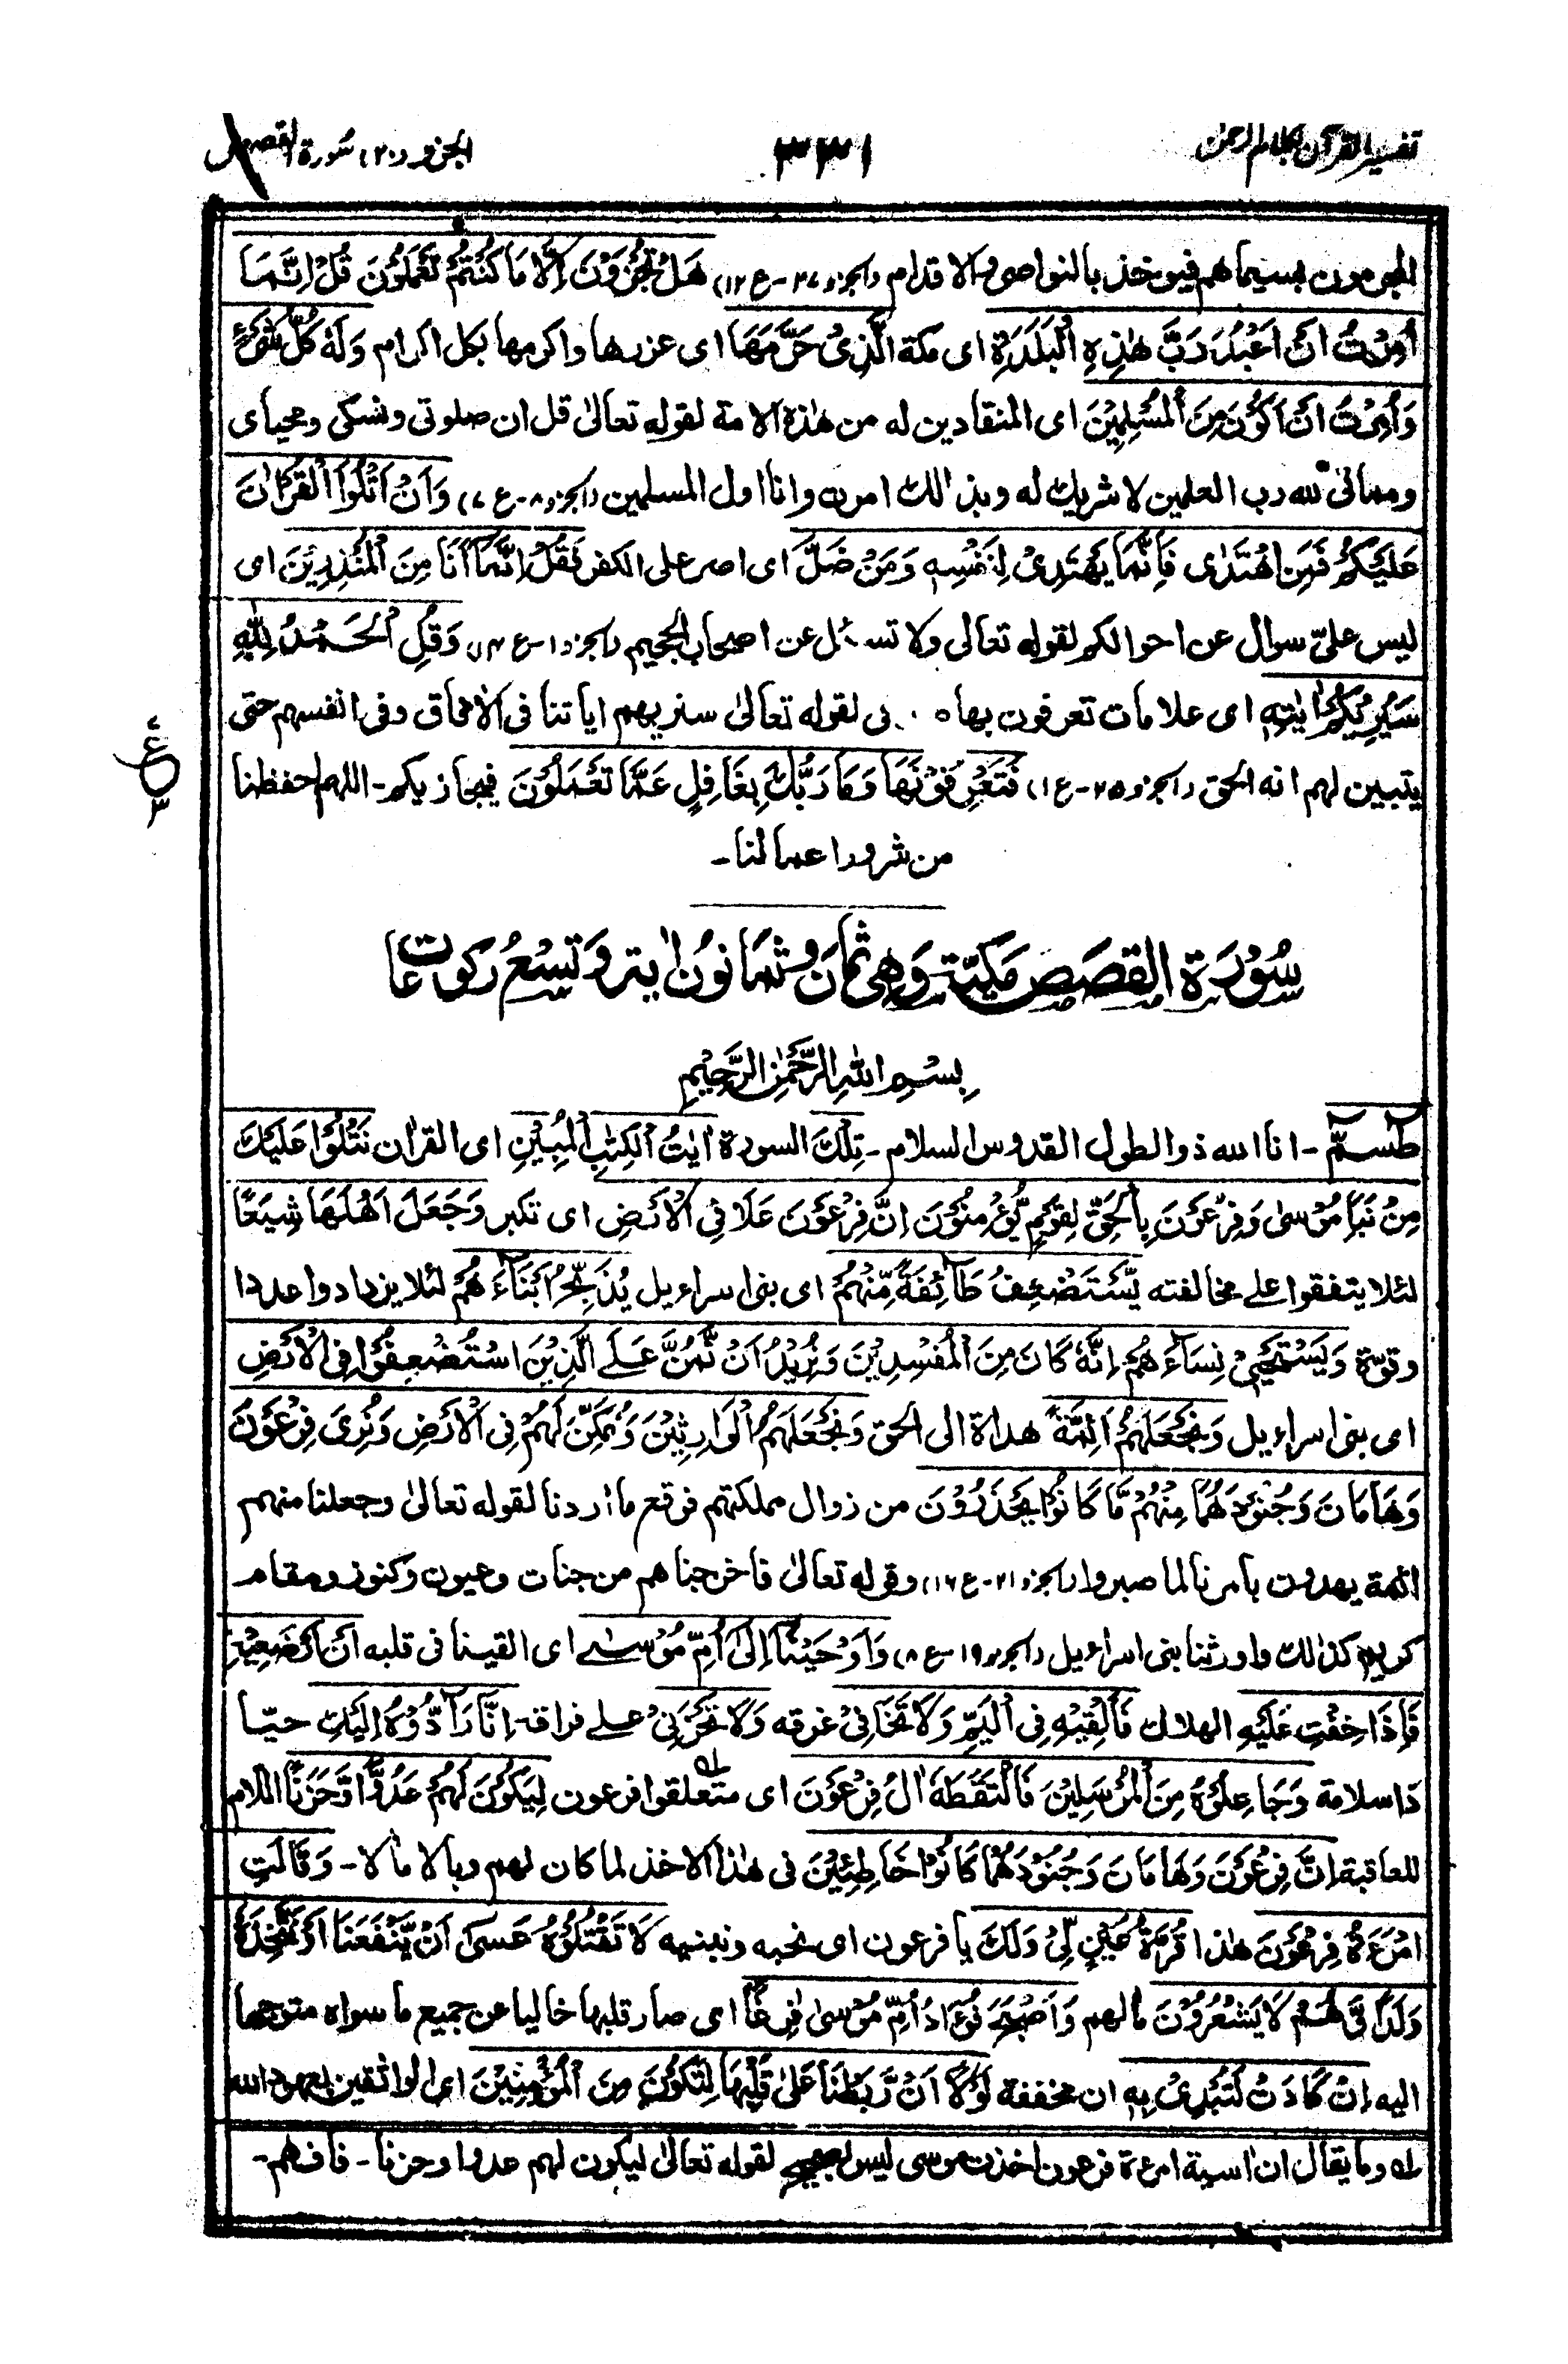 تفسير القرآن بكلام الرحمن
٣٣١
الجزو (٢٠) سورة القصص
المجرمون بسيماهم فيوخذ بالنواصي والاقدام (الجزو ٢٧-ع ١٢) هَلْ تُجْزَوْنَ اِلَّا مَا كُنْتُمْ تَعْمَلُوْنَ قُلْ اِنَّمَا
اُمِرْتُ اَنْ اَعْبُدَ رَبَّ هٰذِهِ الْبَلْدَةِ اى مكة الَّذِىْ حَرَّمَهَا اى عزرها واكرمها بكل اكرام وَلَهٗ كُلُّ شَىْءٍ
وَاُمِرْتُ اَنْ اَكُوْنَ مِنَ الْمُسْلِمِيْنَ اى المنقادين له من هٰذه الامة لقوله تعالىٰ قل ان صلوتى ونسكى ومحياى
ومماتى لله رب العلمين لا شريك له وبذالك امرت وانا اول المسلمين (الجزو ٨-ع ٧) وَاَنْ اَتْلُوَا الْقُرْاٰنَ
عَلَيْكُمْ فَمَنِ اهْتَدٰى فَاِنَّمَا يَهْتَدِىْ لِنَفْسِهٖ وَمَنْ ضَلَّ اى اصر على الكفر فَقُلْ اِنَّمَا اَنَا مِنَ الْمُنْذِرِيْنَ اى
ليس علىّ سوال عن احوالكم لقوله تعالى ولا تسئل عن اصحاب الجحيم (الجزو ١-ع ١٤) وَقُلِ الْحَمْدُ لِلّٰهِ
سَيُرِيْكُمْ اٰيٰتِهٖ اى علامات تعرفون بها لقوله تعالىٰ سنريهم اياتنا فى الاٰفاق وفى انفسهم حتى
يتبين لهم انه الحق (الجزو ٢٥-ع ١) فَتَعْرِفُوْنَهَا وَمَا رَبُّكَ بِغَافِلٍ عَمَّا تَعْمَلُوْنَ فيجازيكم- اللهم احفظنا
ع
٣
من شرور اعمالنا-
سُوْرَةُ الْقَصَصِ مَكِّيَّةٌ وَهِىَ ثَمَانٌ وَّثَمَانُوْنَ اٰيَةً وَّتِسْعُ رُكُوْعَاتٍ
بِسْمِ اللهِ الرَّحْمٰنِ الرَّحِيْمِ
طٰسٓمّٓ- انا الله ذو الطول القدوس السلام- تِلْكَ السورة اٰيٰتُ الْكِتٰبِ الْمُبِيْنِ اى القراٰن نَتْلُوْا عَلَيْكَ
مِنْ نَبَاِ مُوْسٰى وَفِرْعَوْنَ بِالْحَقِّ لِقَوْمٍ يُّؤْمِنُوْنَ اِنَّ فِرْعَوْنَ عَلَا فِى الْاَرْضِ اى تكبر وَجَعَلَ اَهْلَهَا شِيَعًا
لئلا يتفقوا على مخالفته يَّسْتَضْعِفُ طَآئِفَةً مِّنْهُمْ اى بنى اسراءيل يُذَبِّحُ اَبْنَآءَهُمْ لئلا يزدادوا عددا
وقوّة وَيَسْتَحْيٖ نِسَآءَهُمْ اِنَّهٗ كَانَ مِنَ الْمُفْسِدِيْنَ وَنُرِيْدُ اَنْ نَّمُنَّ عَلَى الَّذِيْنَ اسْتُضْعِفُوْا فِى الْاَرْضِ
اى بنى اسراءيل وَنَجْعَلَهُمْ اَئِمَّةً هداة الى الحق وَنَجْعَلَهُمُ الْوَارِثِيْنَ وَنُمَكِّنَ لَهُمْ فِى الْاَرْضِ وَنُرِىَ فِرْعَوْنَ
وَهَامَانَ وَجُنُوْدَهُمَا مِنْهُمْ مَّا كَانُوْا يَحْذَرُوْنَ من زوال مملكتهم فوقع ما اردنا لقوله تعالىٰ وجعلنا منهم
ائمة يهدون بامرنا لما صبروا (الجزو ٢١-ع ١٦) وقوله تعالىٰ فاخرجناهم من جنات وعيون وكنوز ومقام
كريم كذٰلك واورثنا بنى اسراءيل (الجزو ١٩-ع ٨) وَاَوْحَيْنَا اِلٰى اُمِّ مُوْسٰى اى القينا فى قلبه اَنْ اَرْضِعِيْهِ
فَاِذَا خِفْتِ عَلَيْهِ الهلاك فَاَلْقِيْهِ فِى الْيَمِّ وَلَا تَخَافِىْ غرقه وَلَا تَحْزَنِىْ على فراقه اِنَّا رَآدُّوْهُ اِلَيْكِ حيّا
ذا سلامة وَجَاعِلُوْهُ مِنَ الْمُرْسَلِيْنَ فَالْتَقَطَهٗ اٰلُ فِرْعَوْنَ اى متعلقوا فرعون لِيَكُوْنَ لَهُمْ عَدُوًّا وَّحَزَنًا اللام
للعاقبة اِنَّ فِرْعَوْنَ وَهَامَانَ وَجُنُوْدَهُمَا كَانُوْا خَاطِئِيْنَ فى هٰذا الاخذ لما كان لهم وبالا ماٰلا- وَقَالَتِ
امْرَءَةُ فِرْعَوْنَ هٰذا قُرَّةُ عَيْنٍ لِّىْ وَلَكَ يا فرعون اى نحبه ونبنيه لَا تَقْتُلُوْهُ عَسٰى اَنْ يَّنْفَعَنَا اَوْ نَتَّخِذَهٗ
وَلَدًا وَّهُمْ لَا يَشْعُرُوْنَ ماٰلهم وَاَصْبَحَ فُؤَادُ اُمِّ مُوْسٰى فٰرِغًا اى صار قلبها خاليا عن جميع ما سواه متوجها
اليه اِنْ كَادَتْ لَتُبْدِىْ بِهٖ ان مخففة لَوْلَا اَنْ رَّبَطْنَا عَلٰى قَلْبِهَا لِتَكُوْنَ مِنَ الْمُؤْمِنِيْنَ اى الواثقين بعهود الله
له وما يقال ان اٰسية امرءة فرعون اخذت موسى ليس بصحيح لقوله تعالىٰ ليكون لهم عدوا وحزنا- فافهم-